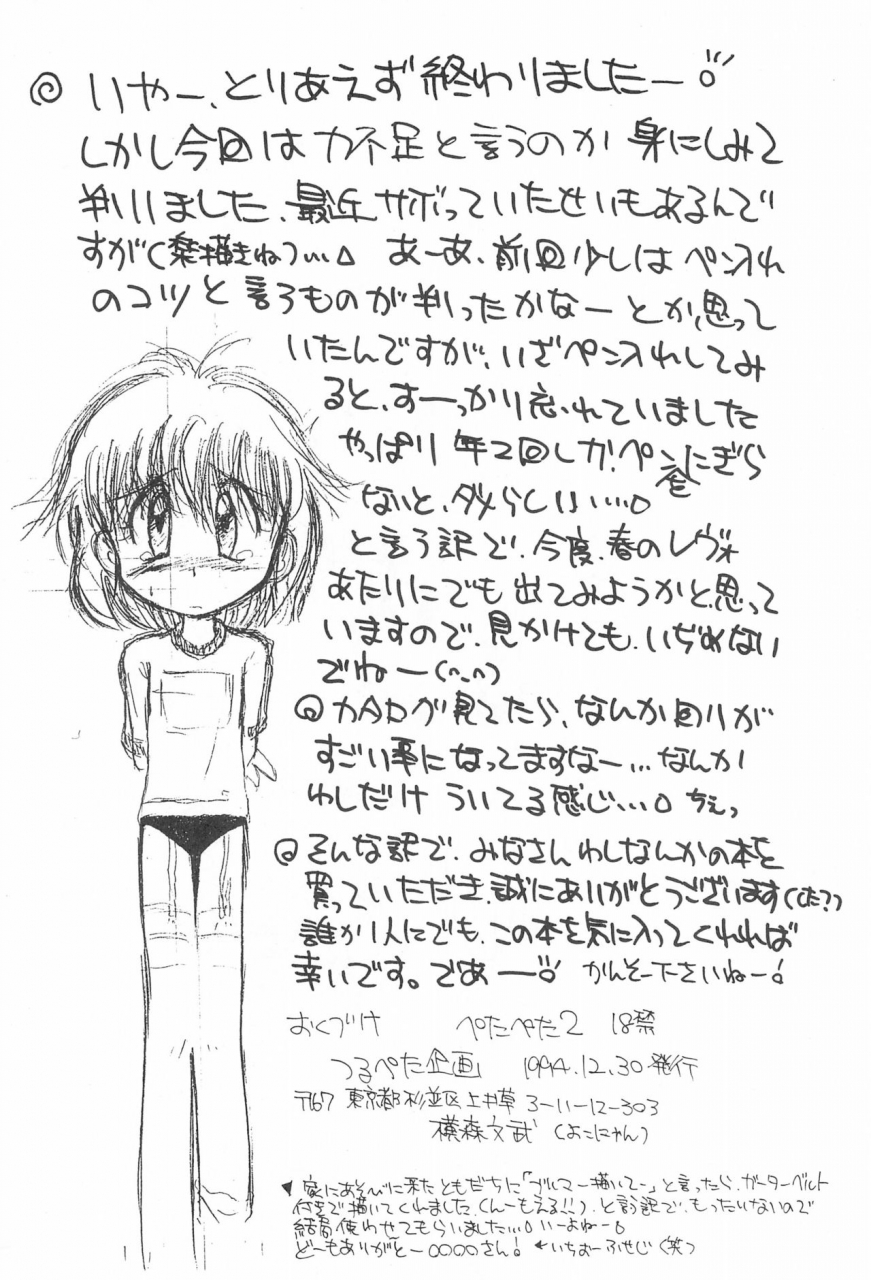 ◎ いやー、とりあえず終わりましたー。
しかし今回は力不足と言うのか 身にしみて
判りました、最近サボっていたせいもあるんで
すが(禁描きね)… あーあ、前回少しはペン入れ
のコツと言うものが判ったかなーとか、思って
いたんですが、いざペン入れしてみ
ると、すーっかり忘れていました
やっぱり 年2回しか、ペンにぎら
ないと、ダメらしい…。
と言う訳で、今度、春のレヴォ
あたりにでも 出てみようかと、思って
いますので、見かけても、いぢめない
でねー(^_^)
◎ カタログ見てたら、なんか回りが
すごい事になってますなー…なんか
わしだけ ういてる感じ…。ちぇっ
◎ そんな訳で、みなさんわしなんかの本を
買っていただき、誠にありがとうございます(した?)
誰か1人にでも、この本を気に入ってくれれば
幸いです。であー。 かんそー下さいねー!
おくづけ ぺたぺた2 18禁
つるぺた企画 1994.12.30発行
〒167 東京都杉並区上井草 3-11-12-303
横森文武 (よこにゃん)
▼家にあそびに来たともだちに「ブルマー描いてー」と言ったら、ガーターベルト
付きで描いてくれました(んーもえる!!)、と言う訳で、もったいないので
結局使わせてもらいました…。いーよねー。
どーもありがとー○○○○さん! ←いちおーふせじ(笑)